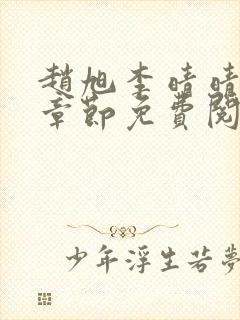 趙旭李晴晴
章節免費閱
少年浮生若夢